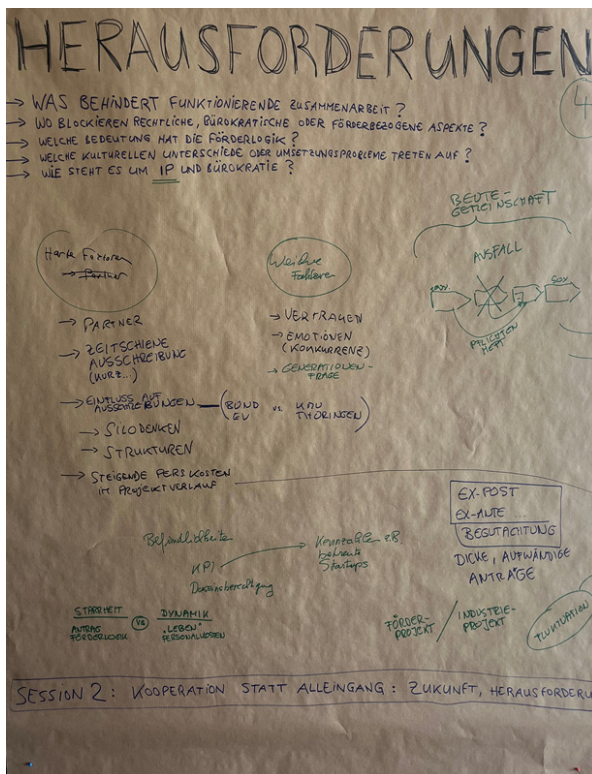 HERAUSFORDERUNGEN
→ WAS BEHINDERT FUNKTIONIERENDE ZUSAMMENARBEIT?
→ WO BLOCKIEREN RECHTLICHE, BÜROKRATISCHE ODER FÖRDERBEZOGENE ASPEKTE?
→ WELCHE BEDEUTUNG HAT DIE FÖRDERLOGIK?
→ WELCHE KULTURELLEN UNTERSCHIEDE ODER UMSETZUNGSPROBLEME TRETEN AUF?
→ WIE STEHT ES UM IP UND BÜROKRATIE?
4
BEUTE-
GEMEINSCHAFT
AUSFALL
PFLICHTEN
HEFT
Harte Faktoren
→ Partner
→ PARTNER
→ ZEITSCHIENE
AUSSCHREIBUNG
(KURZ...)
→ EINFLUSS AUF
AUSSCHREIBUNGEN
(BUND vs. KMU
EU THÜRINGEN)
→ SILODENKEN
→ STRUKTUREN
→ STEIGENDE PERSKOSTEN
IM PROJEKTVERLAUF
Weiche
Faktoren
→ VERTRAUEN
→ EMOTIONEN
(KONKURRENZ)
→ GENERATIONEN-
FRAGE
EX-POST
EX-ANTE ...
BEGUTACHTUNG
DICKE, AUFWÄNDIGE
ANTRÄGE
Befindlichkeiten
KPI
Daseinsberechtigung
Kennzahlen zB
betreute
Startups
STARRHEIT VS DYNAMIK
ANTRAG
FÖRDERLOGIK
"LEBEN"
PERSONALKOSTEN
FÖRDER-
PROJEKT / INDUSTRIE-
PROJEKT
FLUKTUATION
SESSION 2: KOOPERATION STATT ALLEINGANG: ZUKUNFT, HERAUSFORDERU